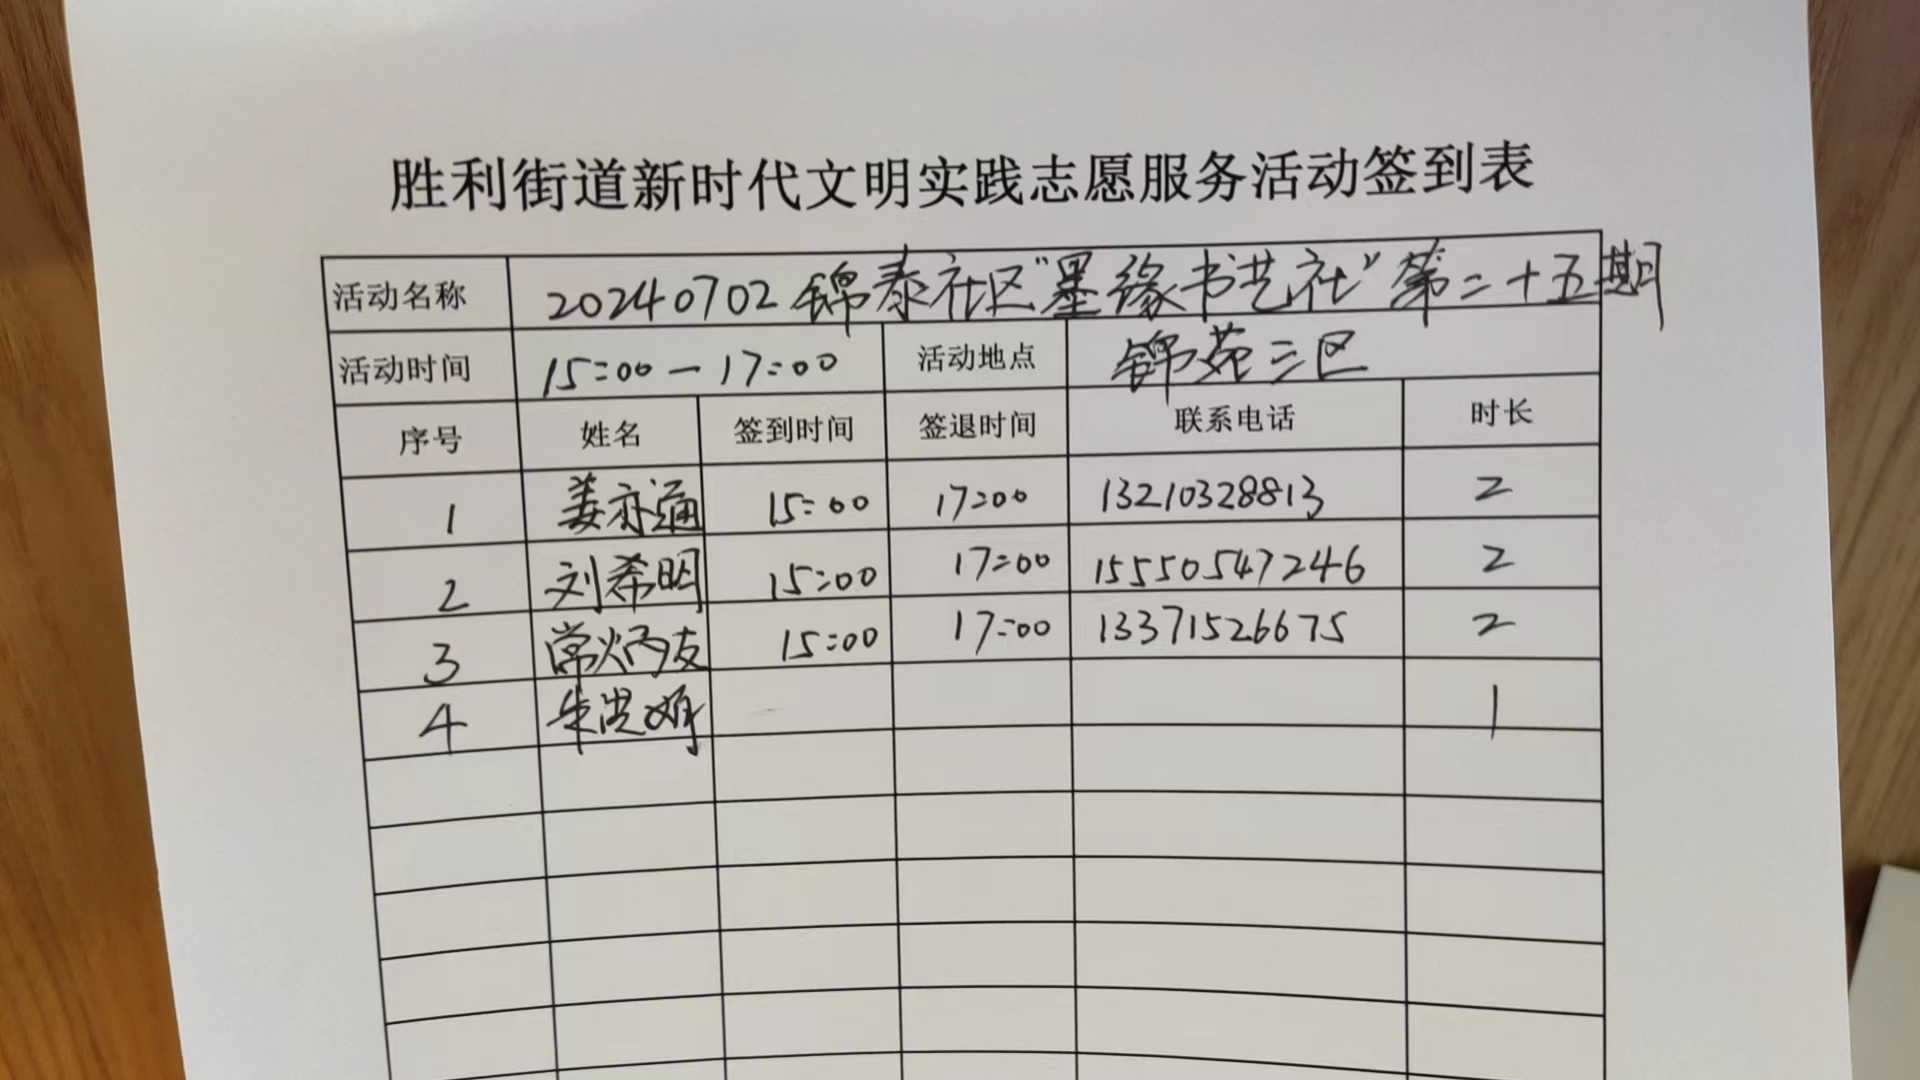 胜利街道新时代文明实践志愿服务活动签到表
活动名称 20240702锦泰社区"墨缘书艺社"第二十五期
活动时间 15:00-17:00 活动地点 锦苑三区
序号 姓名 签到时间 签退时间 联系电话 时长
1 姜亦通 15:00 17:00 13210328813 2
2 刘希明 15:00 17:00 15550547246 2
3 常炳友 15:00 17:00 13371526675 2
4 朱洪 1